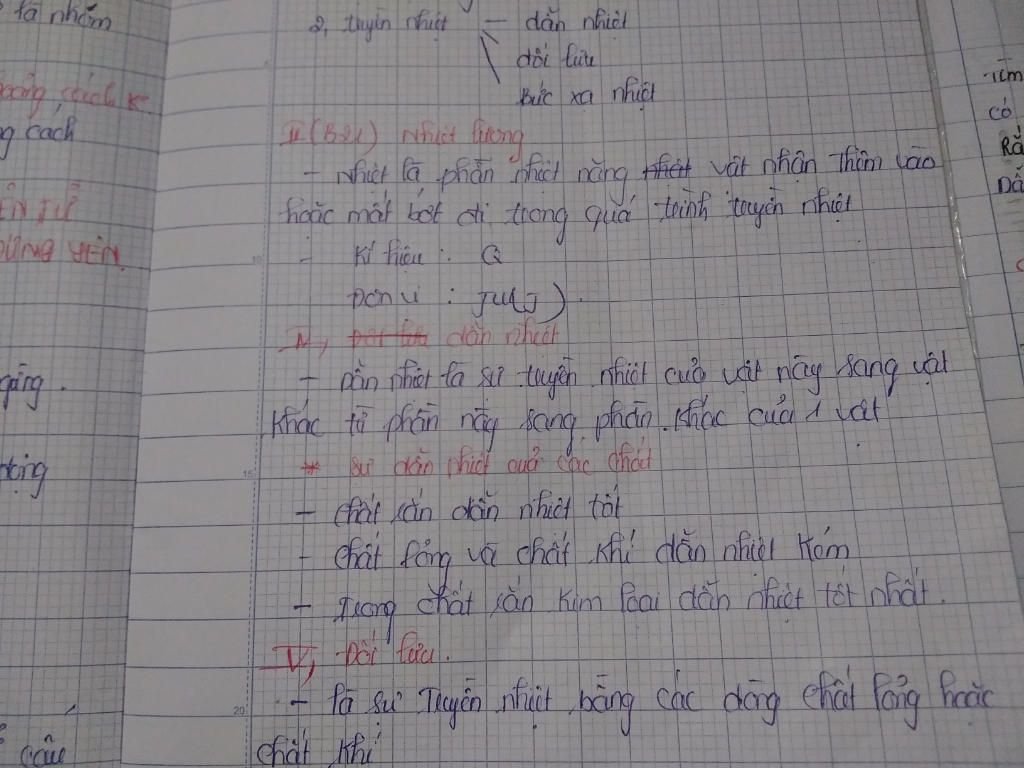 là nhóm
2, truyền nhiệt — dẫn nhiệt
đối lưu
Bức xạ nhiệt
II (B24) nhiệt lượng
- nhiệt là phần nhiệt năng nhiệt vật nhận thêm vào
hoặc mất bớt đi trong quá trình truyền nhiệt
- Kí hiệu : Q
Đơn vị : Ju(J)
IV, đối lưu dẫn nhiệt
- Dẫn nhiệt là sự truyền nhiệt của vật này sang vật
khác từ phần này sang phần khác của 1 vật
* sự dẫn nhiệt của các chất
- chất rắn dẫn nhiệt tốt
- chất lỏng và chất khí dẫn nhiệt kém
- Trong chất rắn kim loại dẫn nhiệt tốt nhất.
V, Đối lưu.
- là sự Truyền nhiệt bằng các dòng chất lỏng hoặc
chất khí
cách
cách
ĐỨNG YÊN
câu
có
15
20